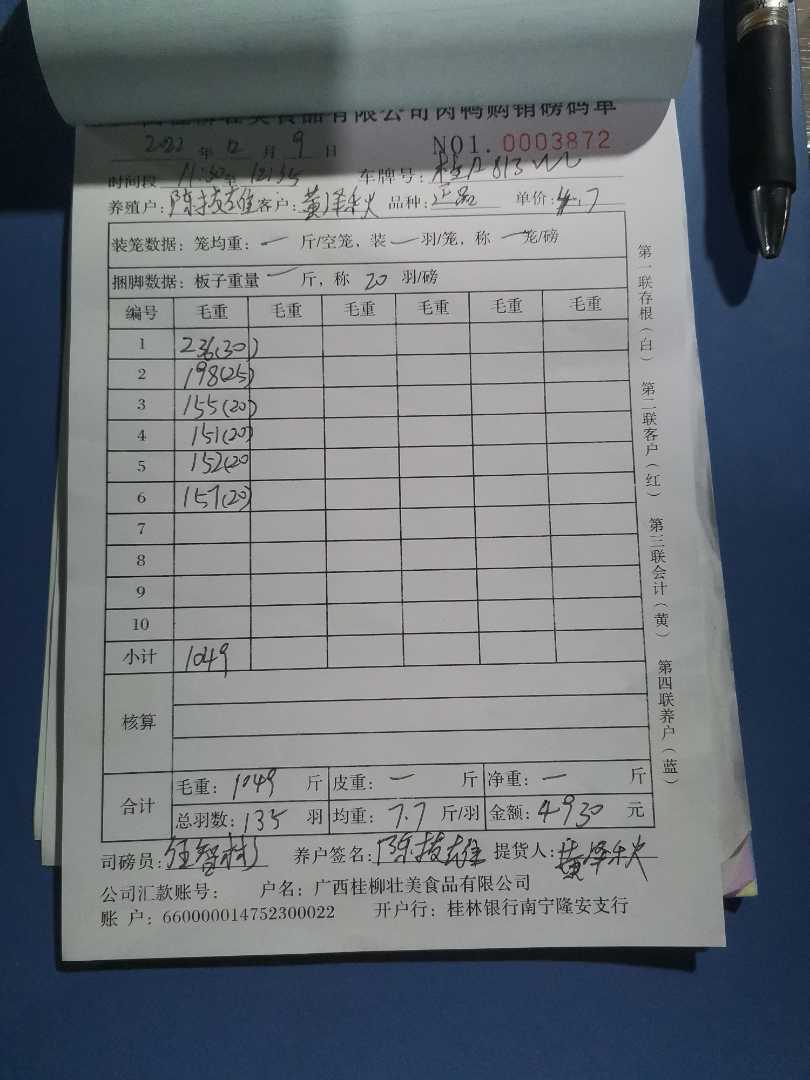 桂柳壮美食品有限公司肉鸭购销磅码单
2022年12月9日 NO1.0003872
时间段 11:30至12:35 车牌号:
养殖户:陈技雄 客户:黄泽秋 品种:正品 单价:4.7
装笼数据:笼均重:一斤/空笼,装一羽/笼,称一笼/磅
捆脚数据:板子重量一斤,称20羽/磅
编号 毛重 毛重 毛重 毛重 毛重 毛重
1 236(30)
2 198(25)
3 155(20)
4 151(20)
5 152(20
6 157(20)
7
8
9
10
小计 1049
核算
合计 毛重:1049斤 皮重:一斤 净重:一斤
总羽数:135羽 均重:7.7斤/羽 金额:4930元
司磅员: 养户签名:陈技雄 提货人:黄泽秋
公司汇款账号: 户名:广西桂柳壮美食品有限公司
账 户:660000014752300022 开户行:桂林银行南宁隆安支行
第一联存根(白) 第二联客户(红) 第三联会计(黄) 第四联养户(蓝)